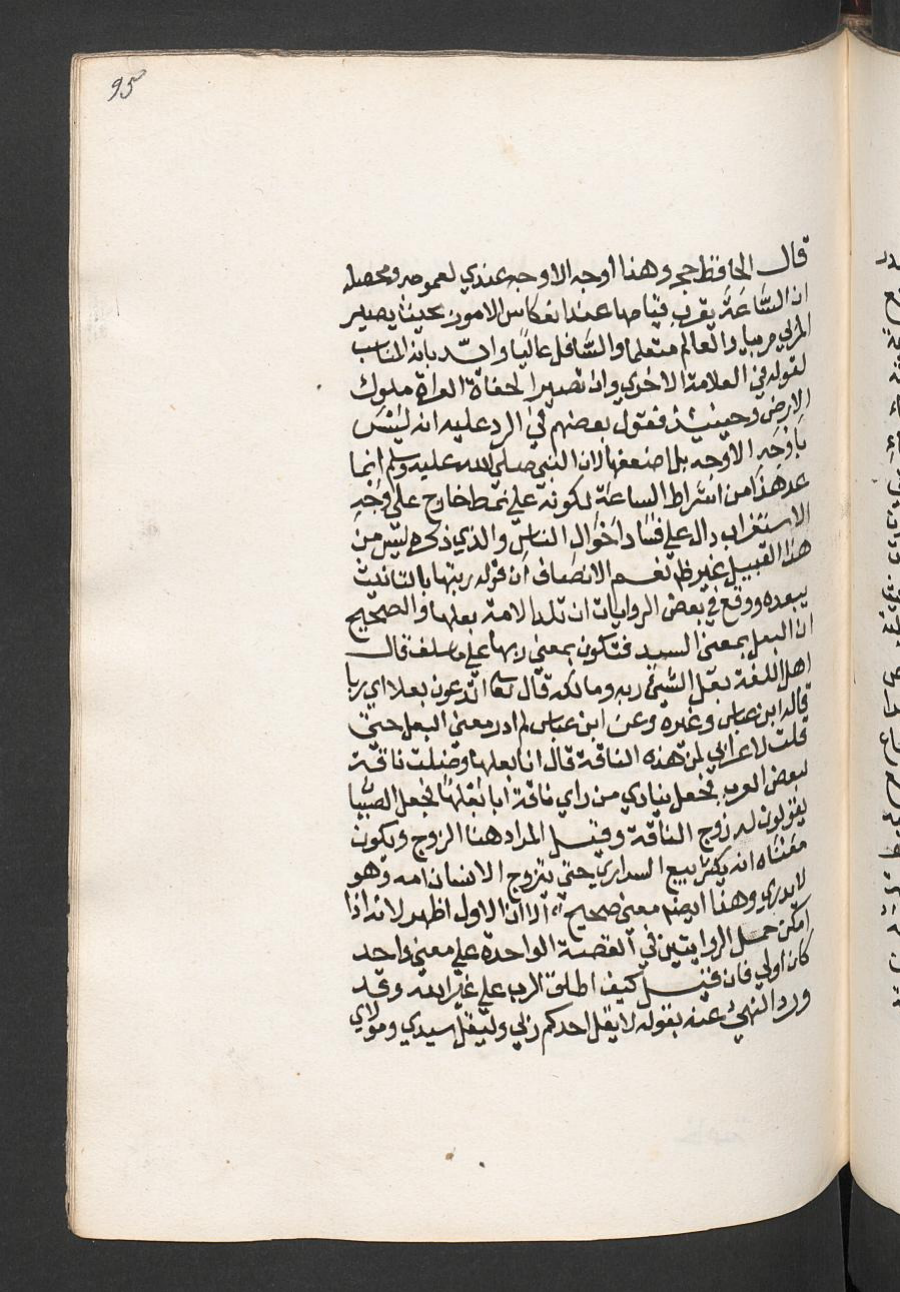 95
قال الحافظ حجر وهذا اوجه الاوجه عندي لعمومه ومحصله
ان السَّاعَةَ يقرب قيامها عند انعكاس الامور بحيث يصير
المربي مربيا والعالم متعلما والسَّافل عاليًا وايّد بانه المناسب
لقوله في العلامة الاخري وان تصير الحفاة العراة ملوك
الارض وحينئذ فقول بعضهم في الرد عليه انه ليْسَ
بِأوْجَهِ الاوجه بل اضعفها لان النبي صلي الله عليه وسلم انما
عد هذا من اشراط الساعة لكونه علي نمط خارج علي وَجْهِ
الاستغراب دال علي فسَاد احْوَال الناس والذي ذكره ليْس من
هذا القبيل غير ظ نعم الانصاف ان قوله ربتها بالتانيث
يبعده ووقع في بعض الروايات ان تلد الامة بعلها والصحيح
ان البعل بمعني السيد فتكون بمعني ربها علي ما سلف قال
اهل اللغة بعل الشيْ ربه ومالكه قال تعا اتدعون بعلا اي ربا
قاله ابن عباس وغيره وعن ابن عباس لم ادر معني البعل حتي
قلت لاعرابي لمن هذه الناقة قال انا بعلها وضلت ناقة
لبعض العرب فجعل ينادي من راي ناقة انا بَعْلهَا فجعل الصبيا
يقولون له زوج الناقة وقيل المراد هنا الزوج ويكون
معْنَاه انه يكثر بيع السراري حتي يتزوج الانسان امه وهو
لا يدري وهذا ايضا معني صحيح الا ان الاول اظهر لانه اذا
امكن حمل الروايتين في القصة الواحدة علي معني واحد
كان اولي فان قيل كيف اطلق الرب علي غيْر الله وقد
ورد النهيُ عنه بقوله لا يقل احدكم ربي وليَقل سيدي ومولاي